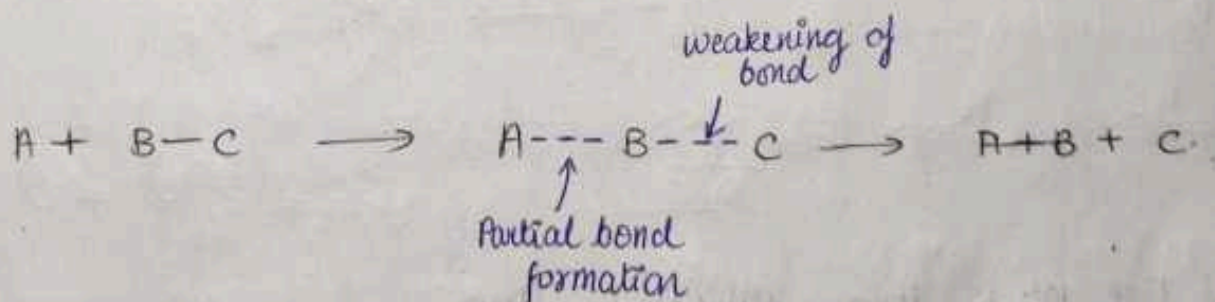 weakening of
bond
A + B - C ⟶ A --- B - -- C ⟶ A+B + C.
Partial bond
formation